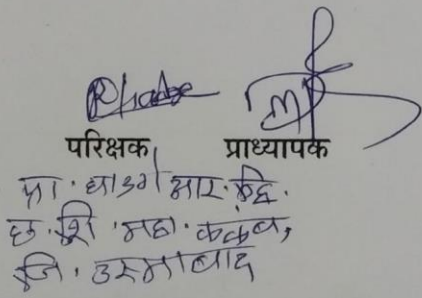 परिक्षक प्राध्यापक
प्रा. घाडगे आर. व्हि.
छ. शि. महा. कळंब,
जि. उस्मानाबाद